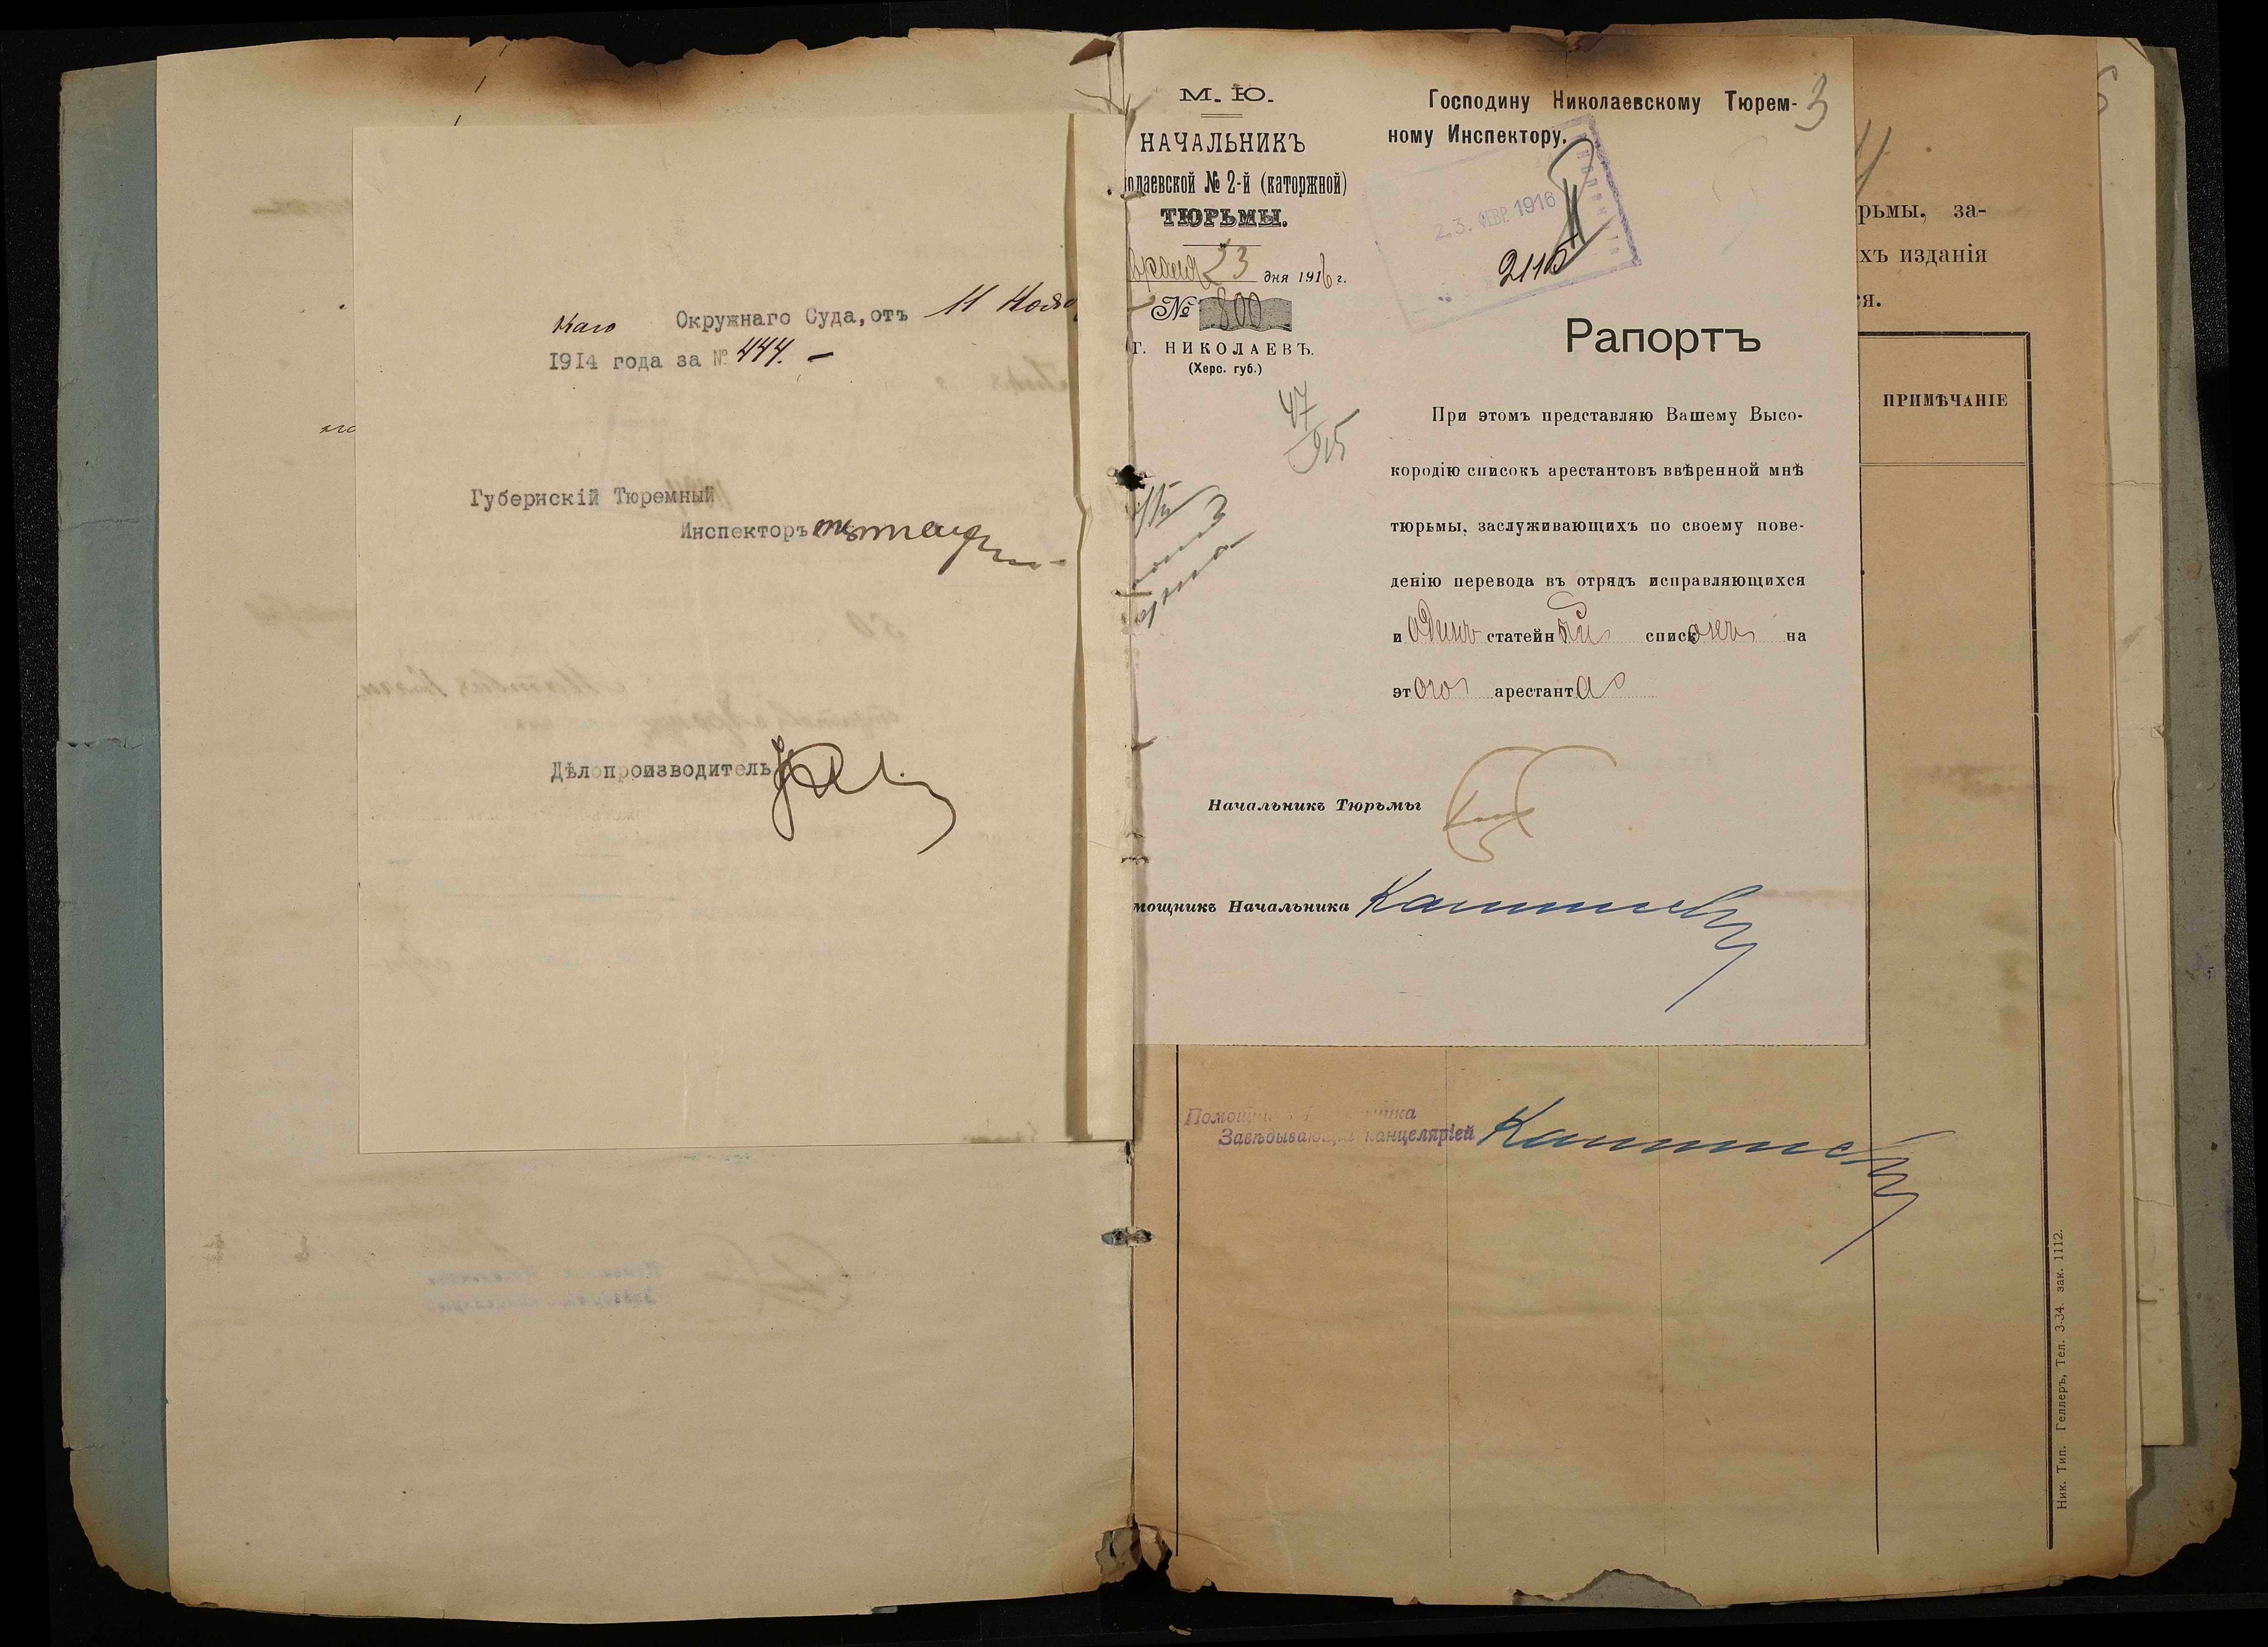 каго Окружнаго Суда, отъ 11 Нояб
1914 года за № 444. —
Губернскій Тюремный
Инспекторъ
Дѣлопроизводитель
М. Ю.
НАЧАЛЬНИКЪ
олаевской № 2-й (каторжной)
ТЮРЬМЫ.
враля 23 дня 1916 г.
№ 800
Г. НИКОЛАЕВЪ.
(Херс. губ.)
47
915
3
Господину Николаевскому Тюрем-
ному Инспектору.
23. ФЕВР. 1916
2115
Рапортъ
При этомъ представляю Вашему Высо-
кородію списокъ арестантовъ ввѣренной мнѣ
тюрьмы, заслуживающихъ по своему пове-
денію перевода въ отрядъ исправляющихся
и одинъ статейный списокъ на
этого арестанта
Начальникъ Тюрьмы
мощникъ Начальника
рьмы, за-
хъ изданія
ся.
ПРИМѢЧАНІЕ
Завѣдывающій канцеляріей
Ник. Тип. Геллеръ, Тел. 3-34. зак. 1112.